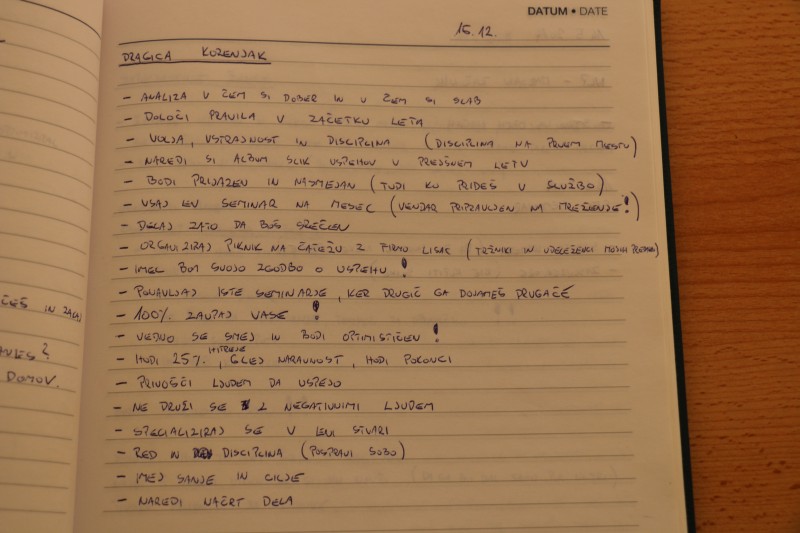 DATUM • DATE
15.12.
DRAGICA KORENJAK
- ANALIZA V ČEM SI DOBER IN V ČEM SI SLAB
- DOLOČI PRAVILA V ZAČETKU LETA
- VOLJA, VSTRAJNOST IN DISCIPLINA (DISCIPLINA NA PRVEM MESTU)
- NAREDI SI ALBUM SLIK USPEHOV V PREJŠNEM LETU
- BODI PRIJAZEN IN NASMEJAN (TUDI KO PRIDEŠ V SLUŽBO)
- VSAJ EN SEMINAR NA MESEC (VENDAR PRIPRAVLJEN NA MREŽENJE!)
- DELAJ ZATO DA BOŠ SREČEN
- ORGANIZIRAJ PIKNIK NA ČATEŽU Z FIRMO LISAC (TRŽNIKI IN UDELEŽENCI MOJIH)
- IMEL BOM SVOJO ZGODBO O USPEHU!
- PONAVLJAJ ISTE SEMINARJE, KER DRUGIČ GA DOJAMEŠ DRUGAČE
- 100% ZAUPAJ VASE!
- VEDNO SE SMEJ IN BODI OPTIMISTIČEN!
- HODI 25% HITREJE, GLEJ NARAVNOST, HODI POKONCI
- PRIVOŠČI LJUDEM DA USPEJO
- NE DRUŽI SE Z NEGATIVNIMI LJUDEM
- SPECIALIZIRAJ SE V ENI STVARI
- RED IN DISCIPLINA (POSPRAVI SOBO)
- IMEJ SANJE IN CILJE
- NAREDI NAČRT DELA
ČEŠ IN ZAKAJ
?
DOMOV.